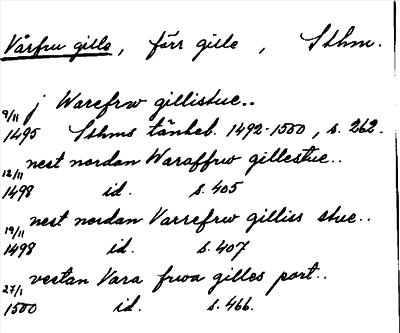 Vårfru gille, förr gille, Sthm.
j Warefrw gillistue..
9/11 1495 Sthms tänkeb. 1492-1500, s. 262.
nest nordan Waraffrw gillestue..
12/11 1498 id. s. 405
nest nordan Varrefrw gilliss stue..
19/11 1498 id. s. 407
vestan Vara frwa gilles port..
27/1 1500 id. s. 466.